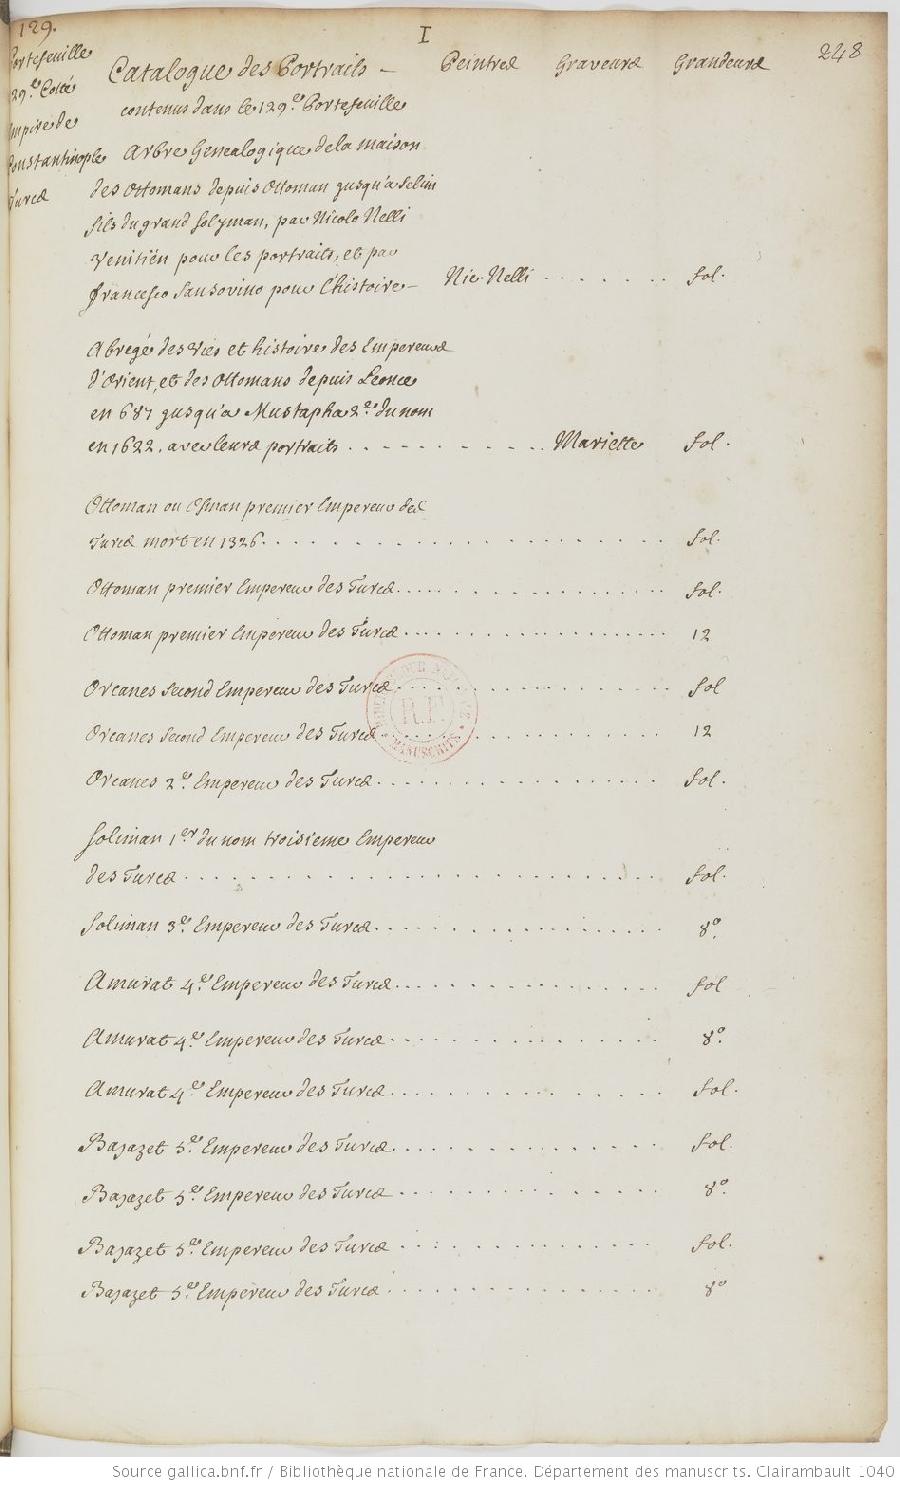 129.
I
248
Portefeuille
129.e Cotté
Empire de
Constantinople
Turcs
Catalogue des Portraits - Peintres Graveurs Grandeurs
contenus dans le 129.e Portefeuille
Arbre Genealogique de la maison
des Ottomans depuis Ottoman jusqu'a Selim
fils du grand Solyman, par Nicolo Nelli
Venitien pour les portraits, et par
francesco Sansovino pour l'histoire - Nic. Nelli . . . . . . fol.
Abregé des vies et histoires des Empereurs
d'Orient, et des Ottomans depuis Leonce
en 687 jusqu'a Mustapha 2.e du nom
en 1622. avec leurs portraits . . . . . . . . . . Mariette fol.
Ottoman ou Osman premier Empereur des
Turcs mort en 1326. . . . . . . . . . . . . . . . fol.
Ottoman premier Empereur des Turcs. . . . . . . . . . . fol.
Ottoman premier Empereur des Turcs . . . . . . . . . . . 12
Orcanes second Empereur des Turcs . . . . . . . . . . . fol
Orcanes second Empereur des Turcs . . . . . . . . . . . 12
Orcanes 2.e Empereur des Turcs . . . . . . . . . . . fol.
Soliman 1.er du nom troisieme Empereur
des Turcs . . . . . . . . . . . . . . . . . . fol.
Soliman 3.e Empereur des Turcs. . . . . . . . . . . . 8.o
Amurat 4.e Empereur des Turcs. . . . . . . . . . . . fol
Amurat 4.e Empereur des Turcs . . . . . . . . . . . 8.o
Amurat 4.e Empereur des Turcs . . . . . . . . . . . fol.
Bajazet 5.e Empereur des Turcs. . . . . . . . . . . . fol.
Bajazet 5.e Empereur des Turcs . . . . . . . . . . . 8.o
Bajazet 5.e Empereur des Turcs . . . . . . . . . . . fol.
Bajazet 5.e Empereur des Turcs . . . . . . . . . . . 8.o
R.F.
MANUSCRITS
Source gallica.bnf.fr / Bibliothèque nationale de France. Département des manuscrits. Clairambault 1040